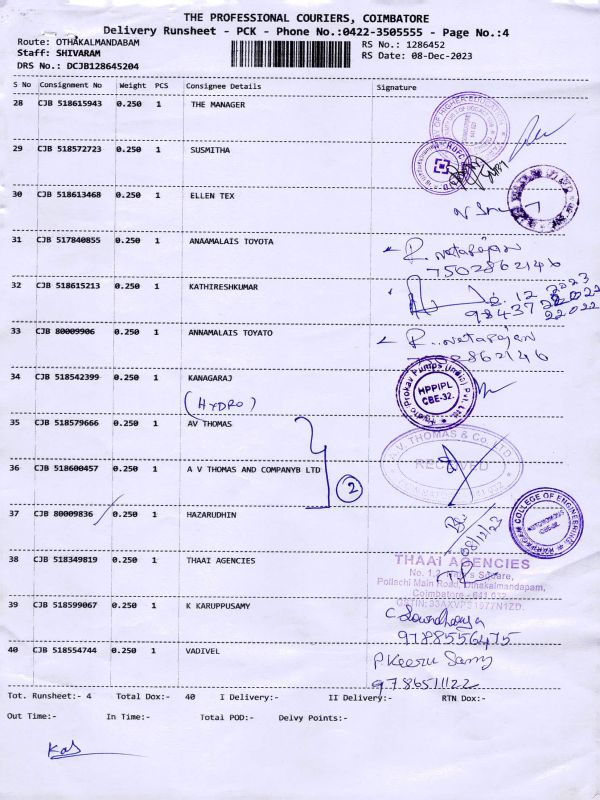 THE PROFESSIONAL COURIERS, COIMBATORE
Delivery Runsheet - PCK - Phone No.:0422-3505555 - Page No.:4
Route: OTHAKALMANDABAM
RS No.: 1286452
Staff: SHIVARAM
RS Date: 08-Dec-2023
DRS No.: DCJB128645204
S No Consignment No Weight PCS Consignee Details Signature
28 CJB 518615943 0.250 1 THE MANAGER
29 CJB 518572723 0.250 1 SUSMITHA
30 CJB 518613468 0.250 1 ELLEN TEX
31 CJB 517840855 0.250 1 ANAAMALAIS TOYOTA
R. Natarajan
7502862146
32 CJB 518615213 0.250 1 KATHIRESHKUMAR
33 CJB 80009906 0.250 1 ANNAMALAIS TOYATO
R. Natarajan
34 CJB 518542399 0.250 1 KANAGARAJ
(HYDRO)
HPPIPL
CBE-32.
35 CJB 518579666 0.250 1 AV THOMAS
A.V. THOMAS & CO. LTD
RECEIVED
36 CJB 518600457 0.250 1 A V THOMAS AND COMPANYB LTD
2
37 CJB 80009836 0.250 1 HAZARUDHIN
08/12/23
COLLEGE OF ENGINEERING
38 CJB 518349819 0.250 1 THAAI AGENCIES
THAAI AGENCIES
Pollachi Main Road, Othakalmandapam,
39 CJB 518599067 0.250 1 K KARUPPUSAMY
9788556475
40 CJB 518554744 0.250 1 VADIVEL
Tot. Runsheet:- 4 Total Dox:- 40 I Delivery:- II Delivery:- RTN Dox:-
Out Time:- In Time:- Total POD:- Delvy Points:-